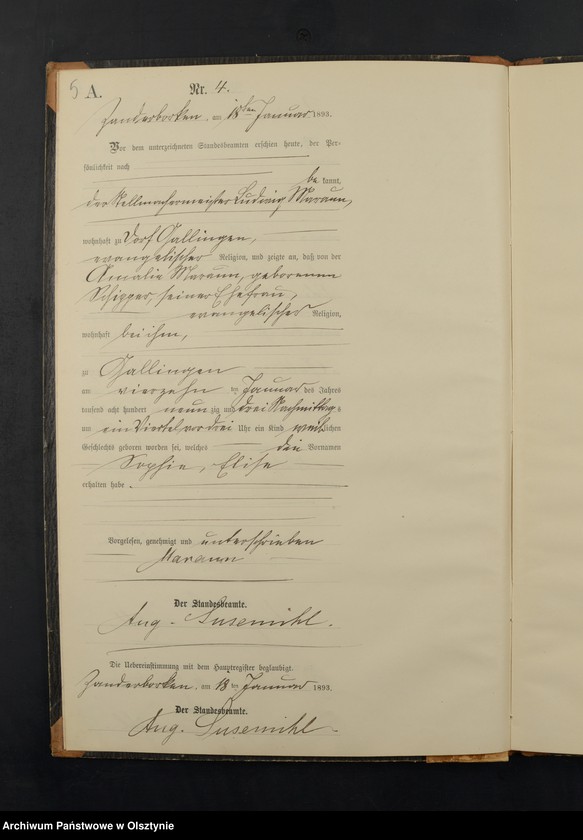 5 A.
Nr. 4.
Zanderborken, am 18ten Januar 1893.
Vor dem unterzeichneten Standesbeamten erschien heute, der Per-
sönlichkeit nach
be kannt,
der Stellmachermeister Ludwig Maraun,
wohnhaft zu Dorf Gallingen,
evangelischer Religion, und zeigte an, daß von der
Amalie Maraun, geborenen
Schipper, seiner Ehefrau,
evangelischer Religion,
wohnhaft bei ihm,
zu Gallingen
am vierzehn ten Januar des Jahres
tausend acht hundert neun zig und drei Nachmittags
um ein Viertel vor drei Uhr ein Kind weib lichen
Geschlechts geboren worden sei, welches die Vornamen
Sophie, Elise
erhalten habe.
Vorgelesen, genehmigt und unterschrieben
Maraun
Der Standesbeamte.
Aug. Susemihl.
Die Uebereinstimmung mit dem Hauptregister beglaubigt.
Zanderborken, am 18 ten Januar 1893.
Der Standesbeamte.
Aug. Susemihl.
Archiwum Państwowe w Olsztynie